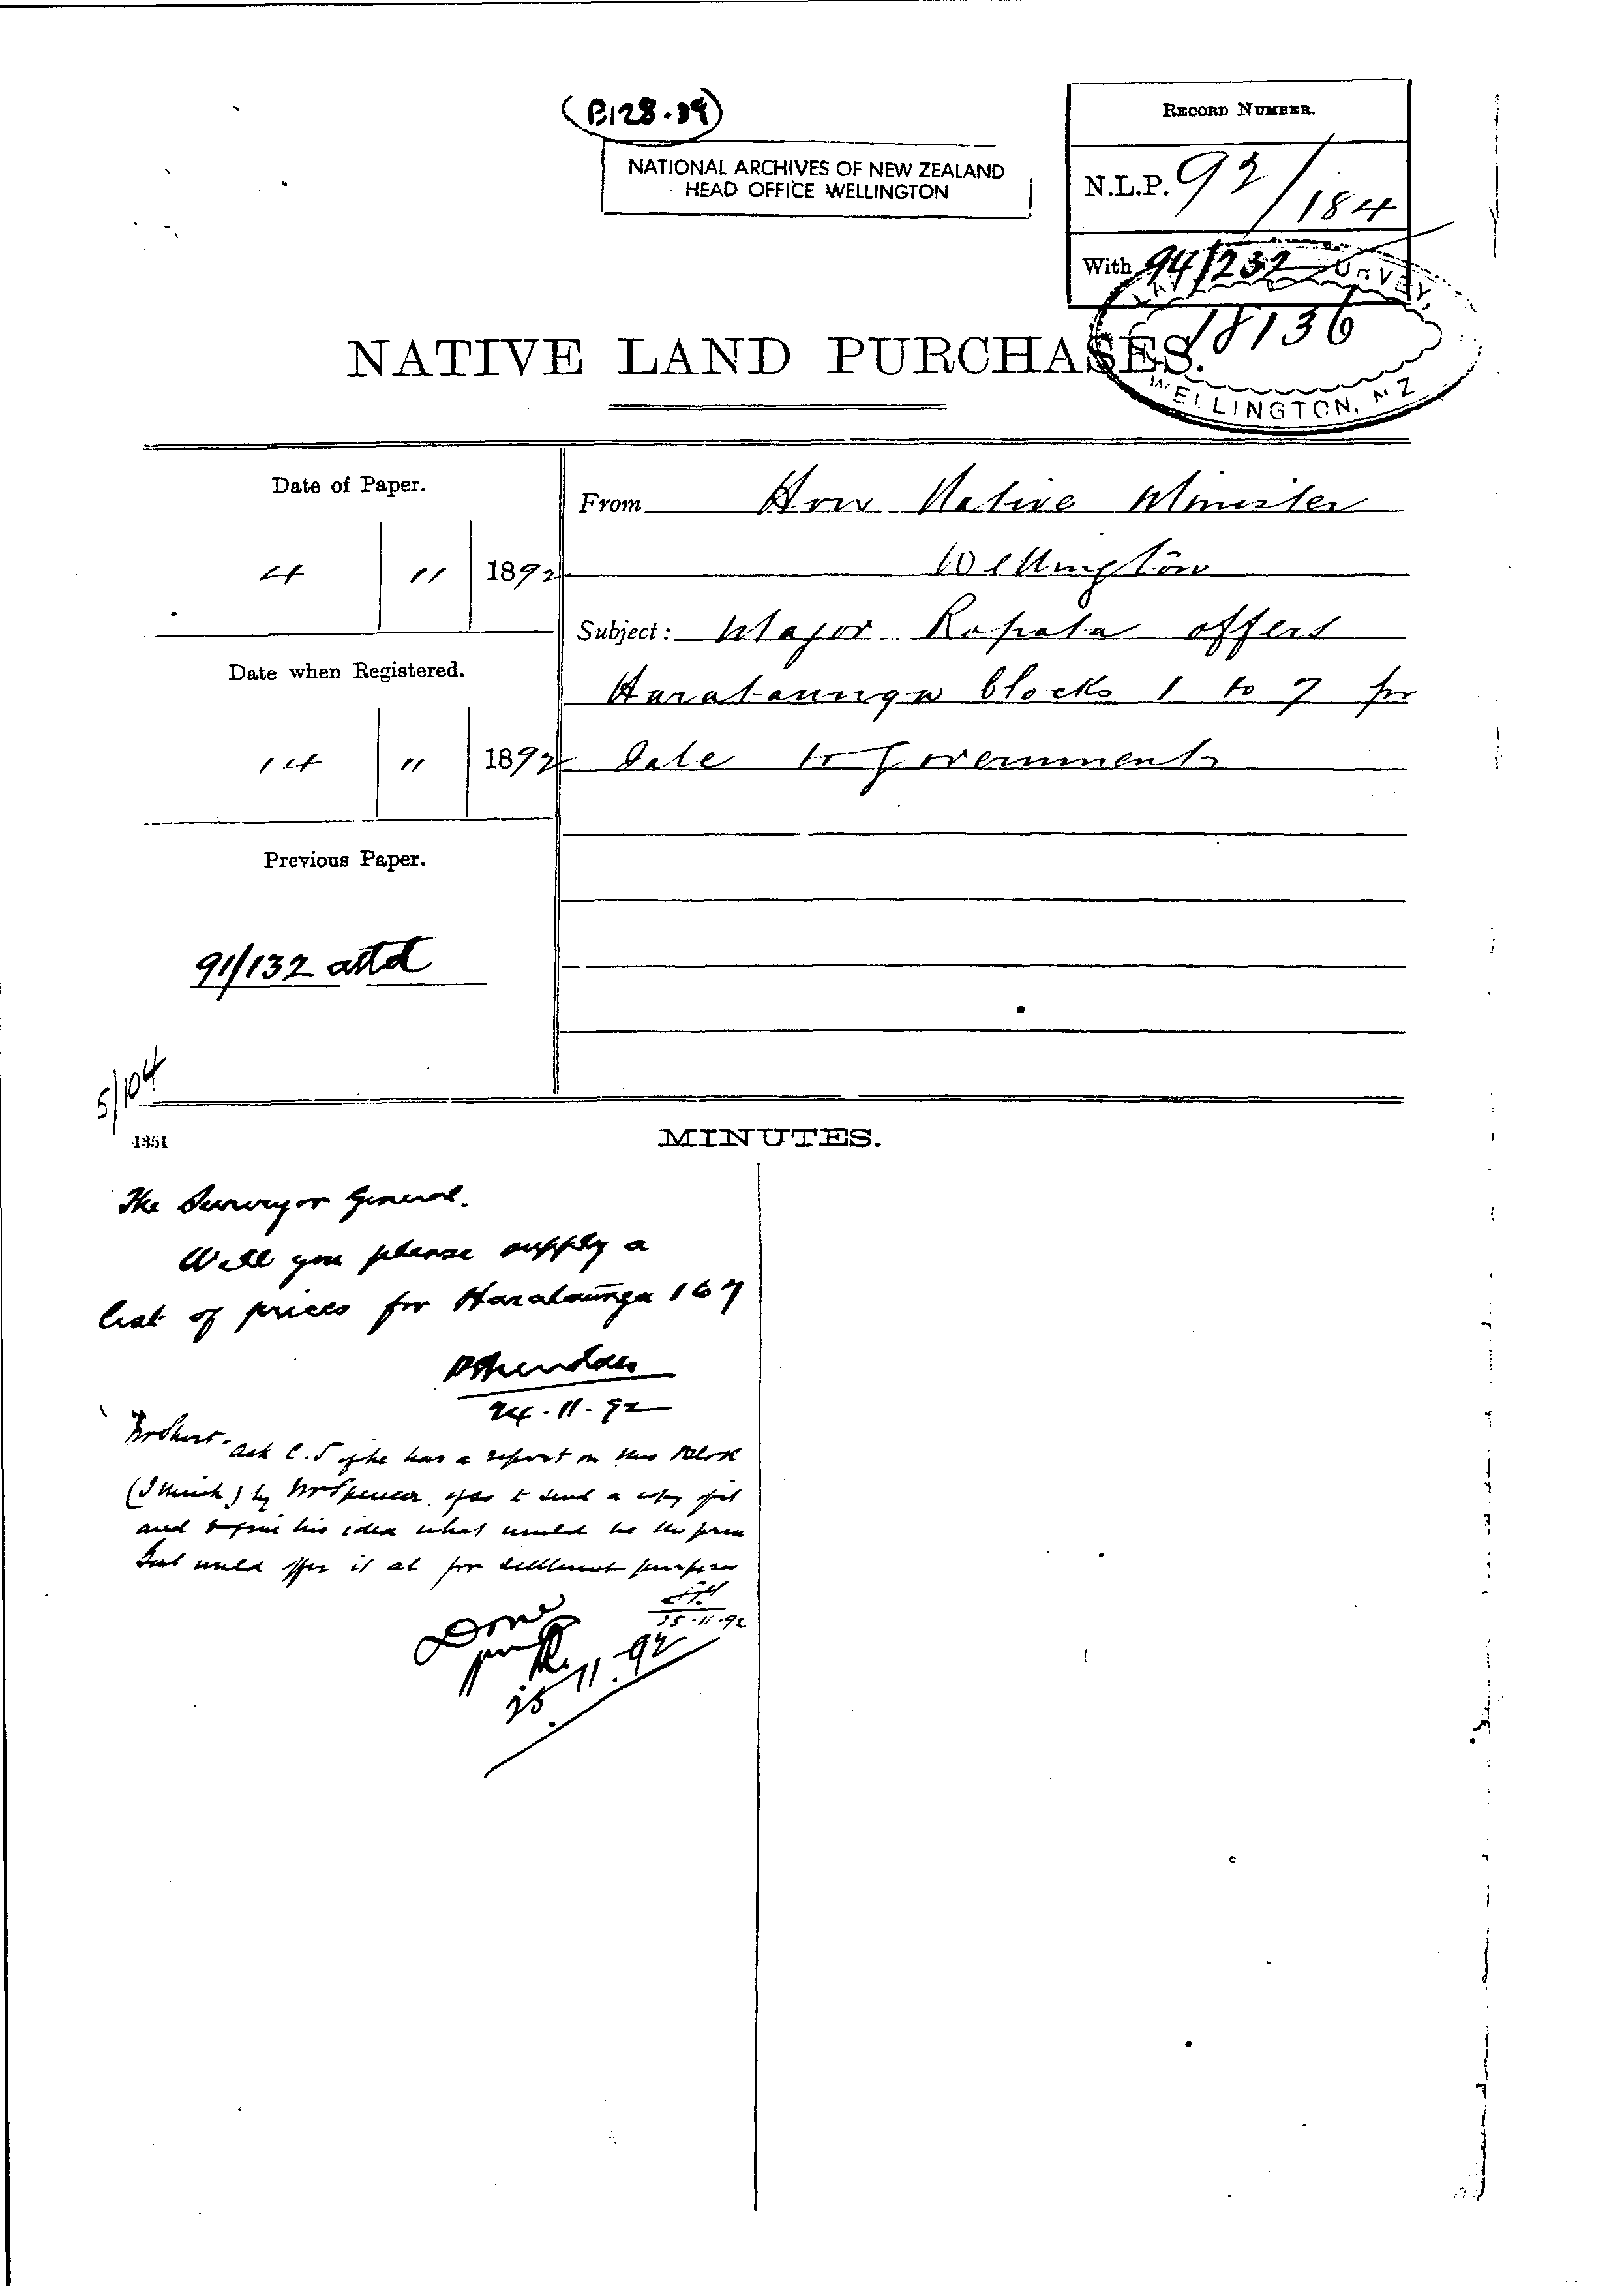 (B128.39)
NATIONAL ARCHIVES OF NEW ZEALAND
HEAD OFFICE WELLINGTON
RECORD NUMBER.
N.L.P. 92/184
With 94/232
SURVEY,
18136
WELLINGTON, NZ
NATIVE LAND PURCHASES.
Date of Paper.
4 | 11 | 1892
From Hon Native Minister
Wellington
Subject: Major Ropata offers
Harataunga blocks 1 to 7 for
Sale to Government
Date when Registered.
14 | 11 | 1892
Previous Paper.
91/132 attd
5/104
1351
MINUTES.
The Surveyor General.
Will you please supply a
list of prices for Harataunga 1 to 7
24.11.92
ask C.S if he has a report on this Block
(I think) by Mr Spencer, if so to send a copy of it
and to give his idea what would be the price
that would offer it at for settlement purposes
25.11.92
Done
25.11.92